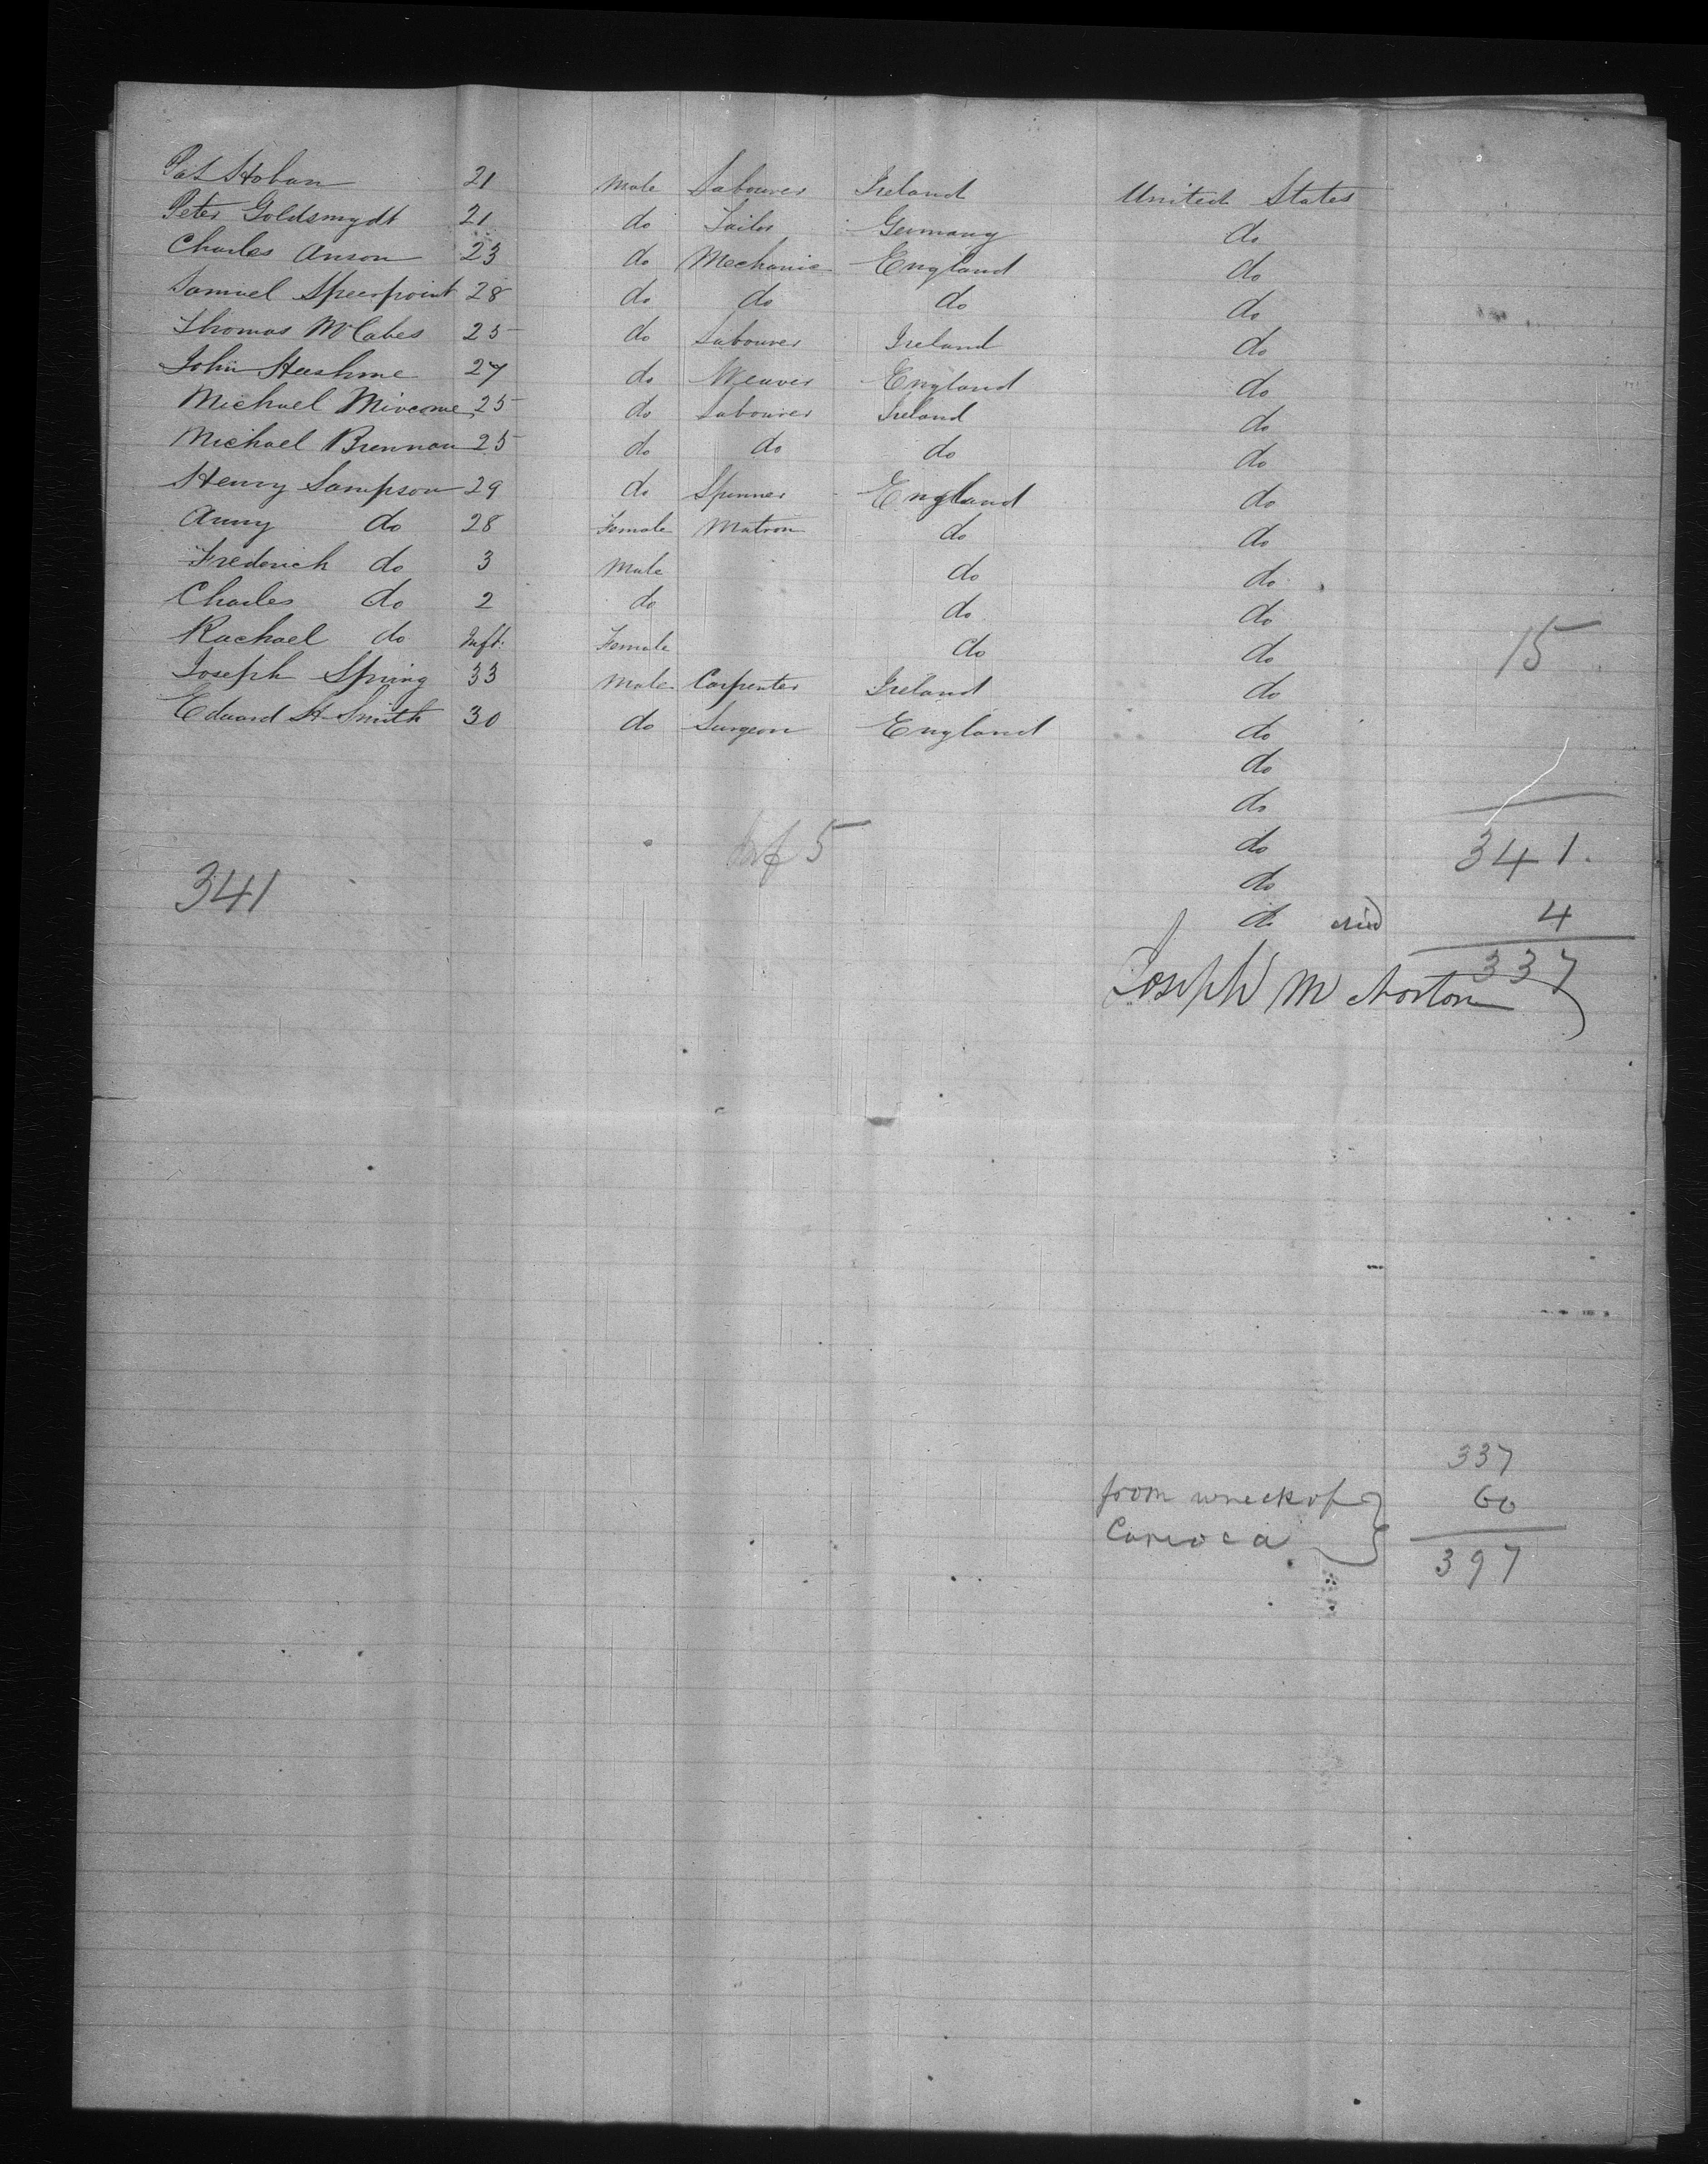 Pat Hoban 21 Male Labourer Ireland United States
Peter Goldsmydt 21 do Tailor Germany do
Charles Anson 23 do Mechanic England do
Samuel Speerpoint 28 do do do do
Thomas McCabes 25 do Labourer Ireland do
John 27 do Weaver England do
Michael 25 do Labourer Ireland do
Michael Brennan 25 do do do do
Henry Sampson 29 do Spinner England do
Anny do 28 Female Matron do do
Frederick do 3 Male do do
Charles do 2 do do do
Rachael do Inft. Female do do
15
Joseph Spring 33 Male Carpenter Ireland do
Edward H Smith 30 do Surgeon England do
do
do
Inf 5 do 341.
341 do
do 4
337
Joseph M Norton
337
from wreck of 60
Carioca
397